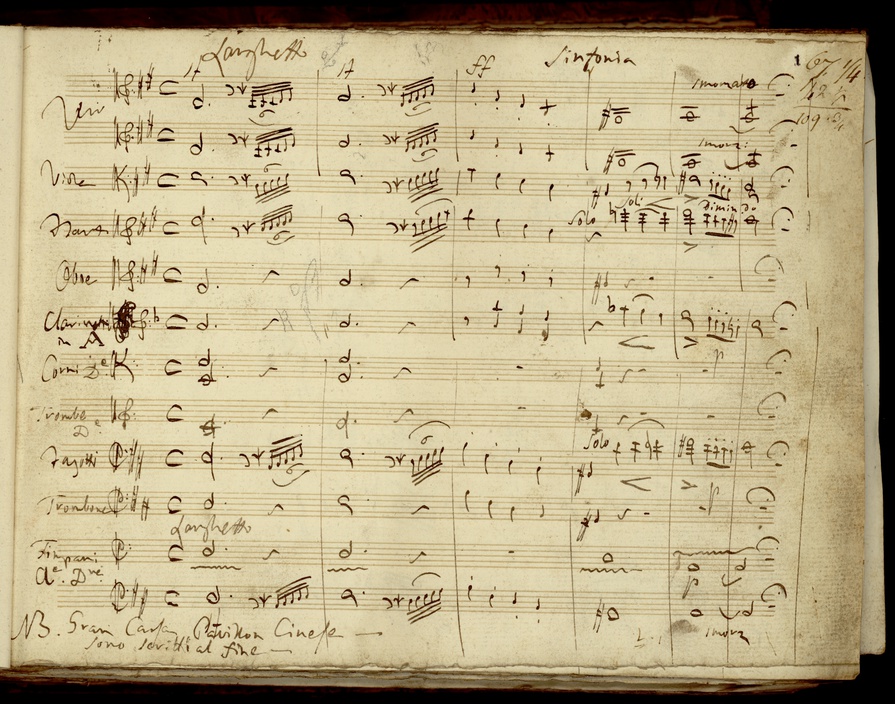 Larghetto
Sinfonia
1
ff
Vni
smorzando
smorz:
Viole
Soli
Solo
dimin do
Oboe
Clarinetti
in A
p
Corni De
Trombe
De
Solo
Fagotti
p
Tromboni
Larghetto
Timpani
p
smorz
NB. Gran Cassa, Pavillon Cinese
sono scritti al fine